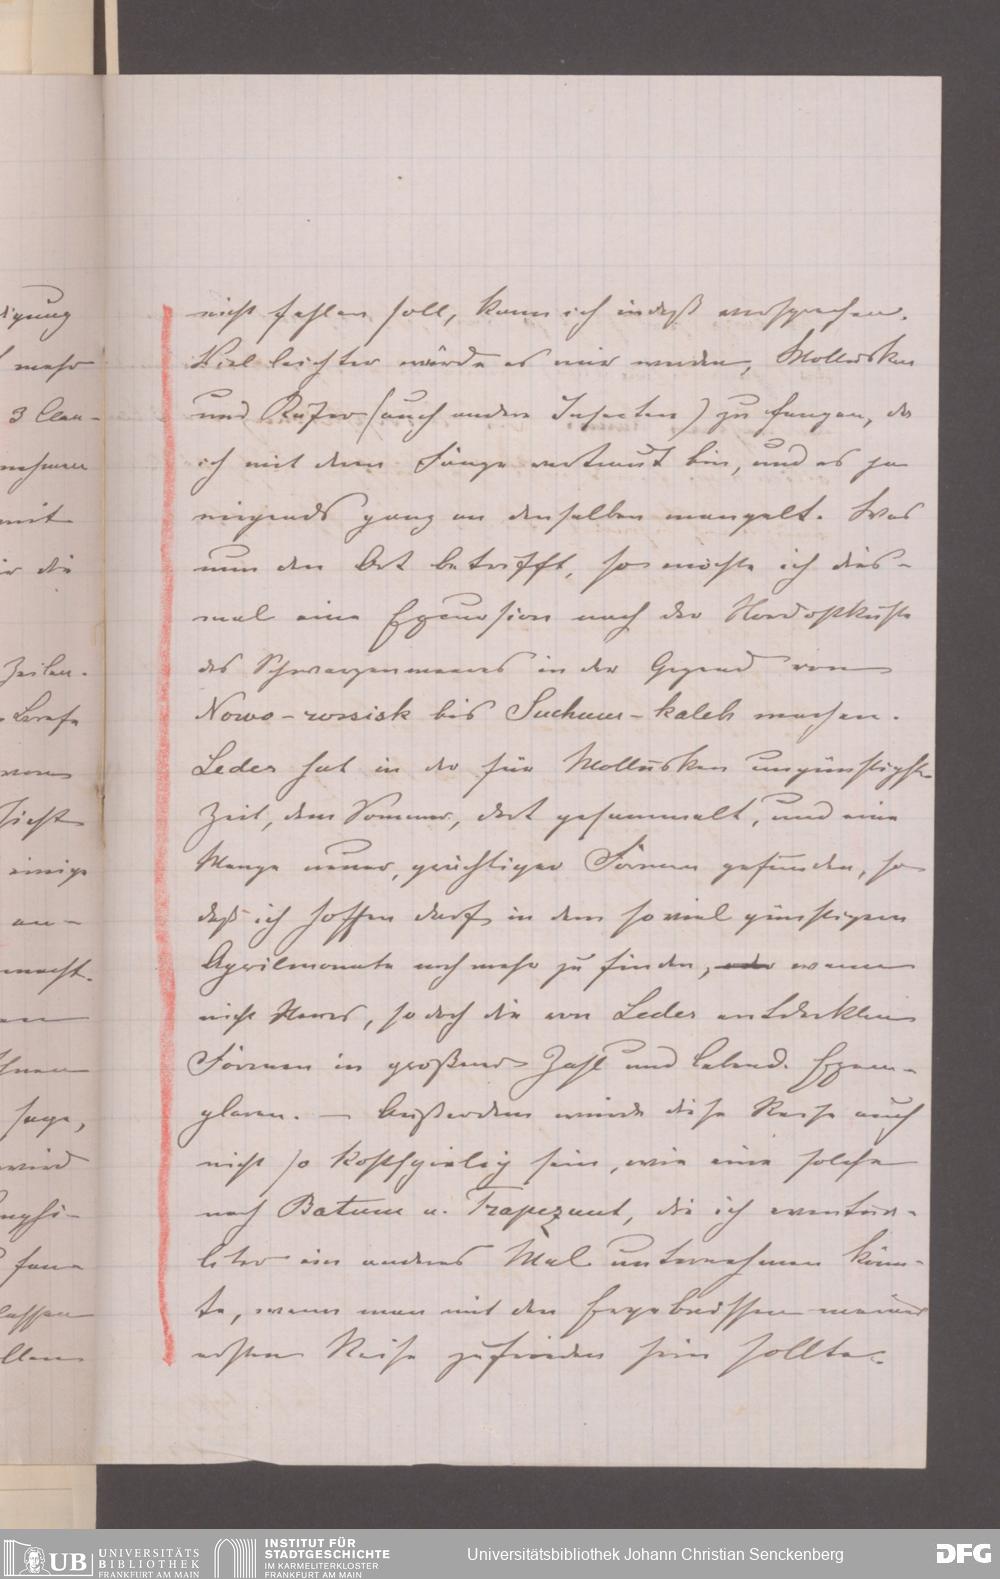 nicht fehlen soll, kann ich indeß versprechen.
Viel leichter würde es mir werden, Mollusken
und Käfer (auch andere Insecten) zu fangen, da
ich mit dem Fange vertraut bin, und es ja
nirgends ganz an denselben mangelt. Was
nun den Ort betrifft, so möchte ich dies-
mal eine Excursion nach der Nordostküste
des Schwarzenmeeres in der Gegend von
Nowo-rossisk bis Suchum-kaleh machen.
Leder hat in der für Mollusken ungünstigsten
Zeit, dem Sommer, dort gesammelt, und eine
Menge neuer, prächtiger Formen gefunden, so
daß ich hoffen darf, in dem so viel günstigern
Aprilmonate noch mehr zu finden, oder wenn
nicht Neues, so doch die von Leder entdeckten
Formen in großer Zahl und lebend. Exem-
plaren. — Außerdem würde diese Reise auch
nicht so kostspielig sein, wie eine solche
nach Batum u. Trapezunt, die ich eventuel-
liter ein anderes Mal unternehmen könn-
te, wenn man mit den Ergebnissen meiner
ersten Reise zufrieden sein sollte.
digung
mehr
3 Clau-
nehmen
mit
die
Zeilen.
einige
an-
macht.
Ihnen
sage,
wird
lassen
UB UNIVERSITÄTS
BIBLIOTHEK
FRANKFURT AM MAIN
INSTITUT FÜR
STADTGESCHICHTE
IM KARMELITERKLOSTER
FRANKFURT AM MAIN
Universitätsbibliothek Johann Christian Senckenberg
DFG